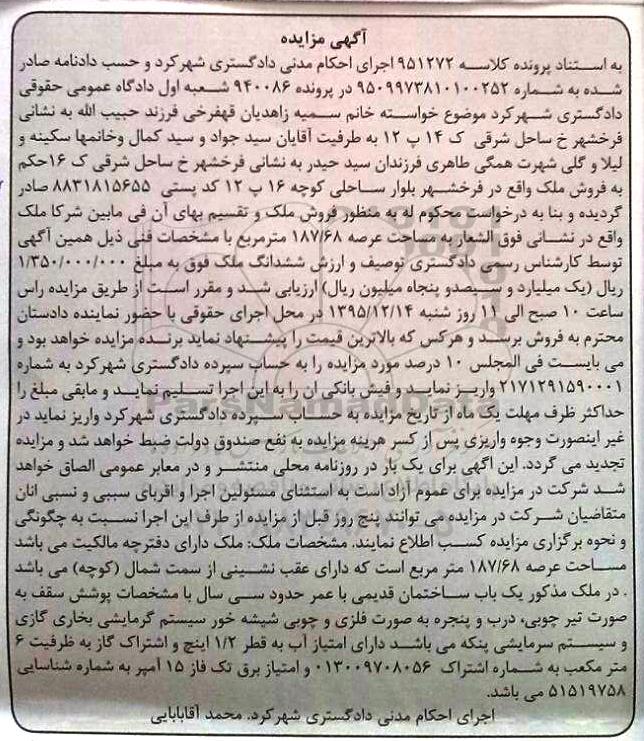 آگهی مزایده
به استناد پرونده کلاسه ۹۵۱۲۷۲ اجرای احکام مدنی دادگستری شهرکرد و حسب دادنامه صادر
شده به شماره ۹۵۰۹۹۷۳۸۱۰۱۰۰۲۵۲ در پرونده ۹۴۰۰۸۶ شعبه اول دادگاه عمومی حقوقی
دادگستری شهرکرد موضوع خواسته خانم سمیه زاهدیان قهفرخی فرزند حبیب الله به نشانی
فرخشهر خ ساحل شرقی ک ۱۴ پ ۱۲ به طرفیت آقایان سید جواد و سید کمال وخانمها سکینه و
لیلا و گلی شهرت همگی طاهری فرزندان سید حیدر به نشانی فرخشهر خ ساحل شرقی ک ۱۶حکم
به فروش ملک واقع در فرخشهر بلوار ساحلی کوچه ۱۶ پ ۱۲ کد پستی ۸۸۳۱۸۱۵۶۵۵ صادر
گردیده و بنا به درخواست محکوم له به منظور فروش ملک و تقسیم بهای آن فی مابین شرکا ملک
واقع در نشانی فوق الشعار به مساحت عرصه ۱۸۷/۶۸ مترمربع با مشخصات فنی ذیل همین آگهی
توسط کارشناس رسمی دادگستری توصیف و ارزش ششدانگ ملک فوق به مبلغ ۱/۳۵۰/۰۰۰/۰۰۰
ریال (یک میلیارد و سیصدو پنجاه میلیون ریال) ارزیابی شد و مقرر است از طریق مزایده راس
ساعت ۱۰ صبح الی ۱۱ روز شنبه ۱۳۹۵/۱۲/۱۴ در محل اجرای حقوقی با حضور نماینده دادستان
محترم به فروش برسد و هرکس که بالاترین قیمت را پیشنهاد نماید برنده مزایده خواهد بود و
می بایست فی المجلس ۱۰ درصد مورد مزایده را به حساب سپرده دادگستری شهرکرد به شماره
۲۱۷۱۲۹۱۵۹۰۰۰۱ واریز نماید و فیش بانکی ان را به این اجرا تسلیم نماید و مابقی مبلغ را
حداکثر ظرف مهلت یک ماه از تاریخ مزایده به حساب سپرده دادگستری شهرکرد واریز نماید در
غیر اینصورت وجوه واریزی پس از کسر هزینه مزایده به نفع صندوق دولت ضبط خواهد شد و مزایده
تجدید می گردد. این اگهی برای یک بار در روزنامه محلی منتشر و در معابر عمومی الصاق خواهد
شد شرکت در مزایده برای عموم آزاد است به استثنای مسئولین اجرا و اقربای سببی و نسبی انان
متقاضیان شرکت در مزایده می توانند پنج روز قبل از مزایده از طرف این اجرا نسبت به چگونگی
و نحوه برگزاری مزایده کسب اطلاع نمایند. مشخصات ملک: ملک دارای دفترچه مالکیت می باشد
مساحت عرصه ۱۸۷/۶۸ متر مربع است که دارای عقب نشینی از سمت شمال (کوچه) می باشد
. در ملک مذکور یک باب ساختمان قدیمی با عمر حدود سی سال با مشخصات پوشش سقف به
صورت تیر چوبی، درب و پنجره به صورت فلزی و چوبی شیشه خور سیستم گرمایشی بخاری گازی
و سیستم سرمایشی پنکه می باشد دارای امتیاز آب به قطر ۱/۲ اینچ و اشتراک گاز به ظرفیت ۶
متر مکعب به شماره اشتراک ۰۱۳۰۰۹۷۰۸۰۵۶ و امتیاز برق تک فاز ۱۵ آمپر به شماره شناسایی
۵۱۵۱۹۷۵۸ می باشد.
اجرای احکام مدنی دادگستری شهرکرد. محمد آقابابایی